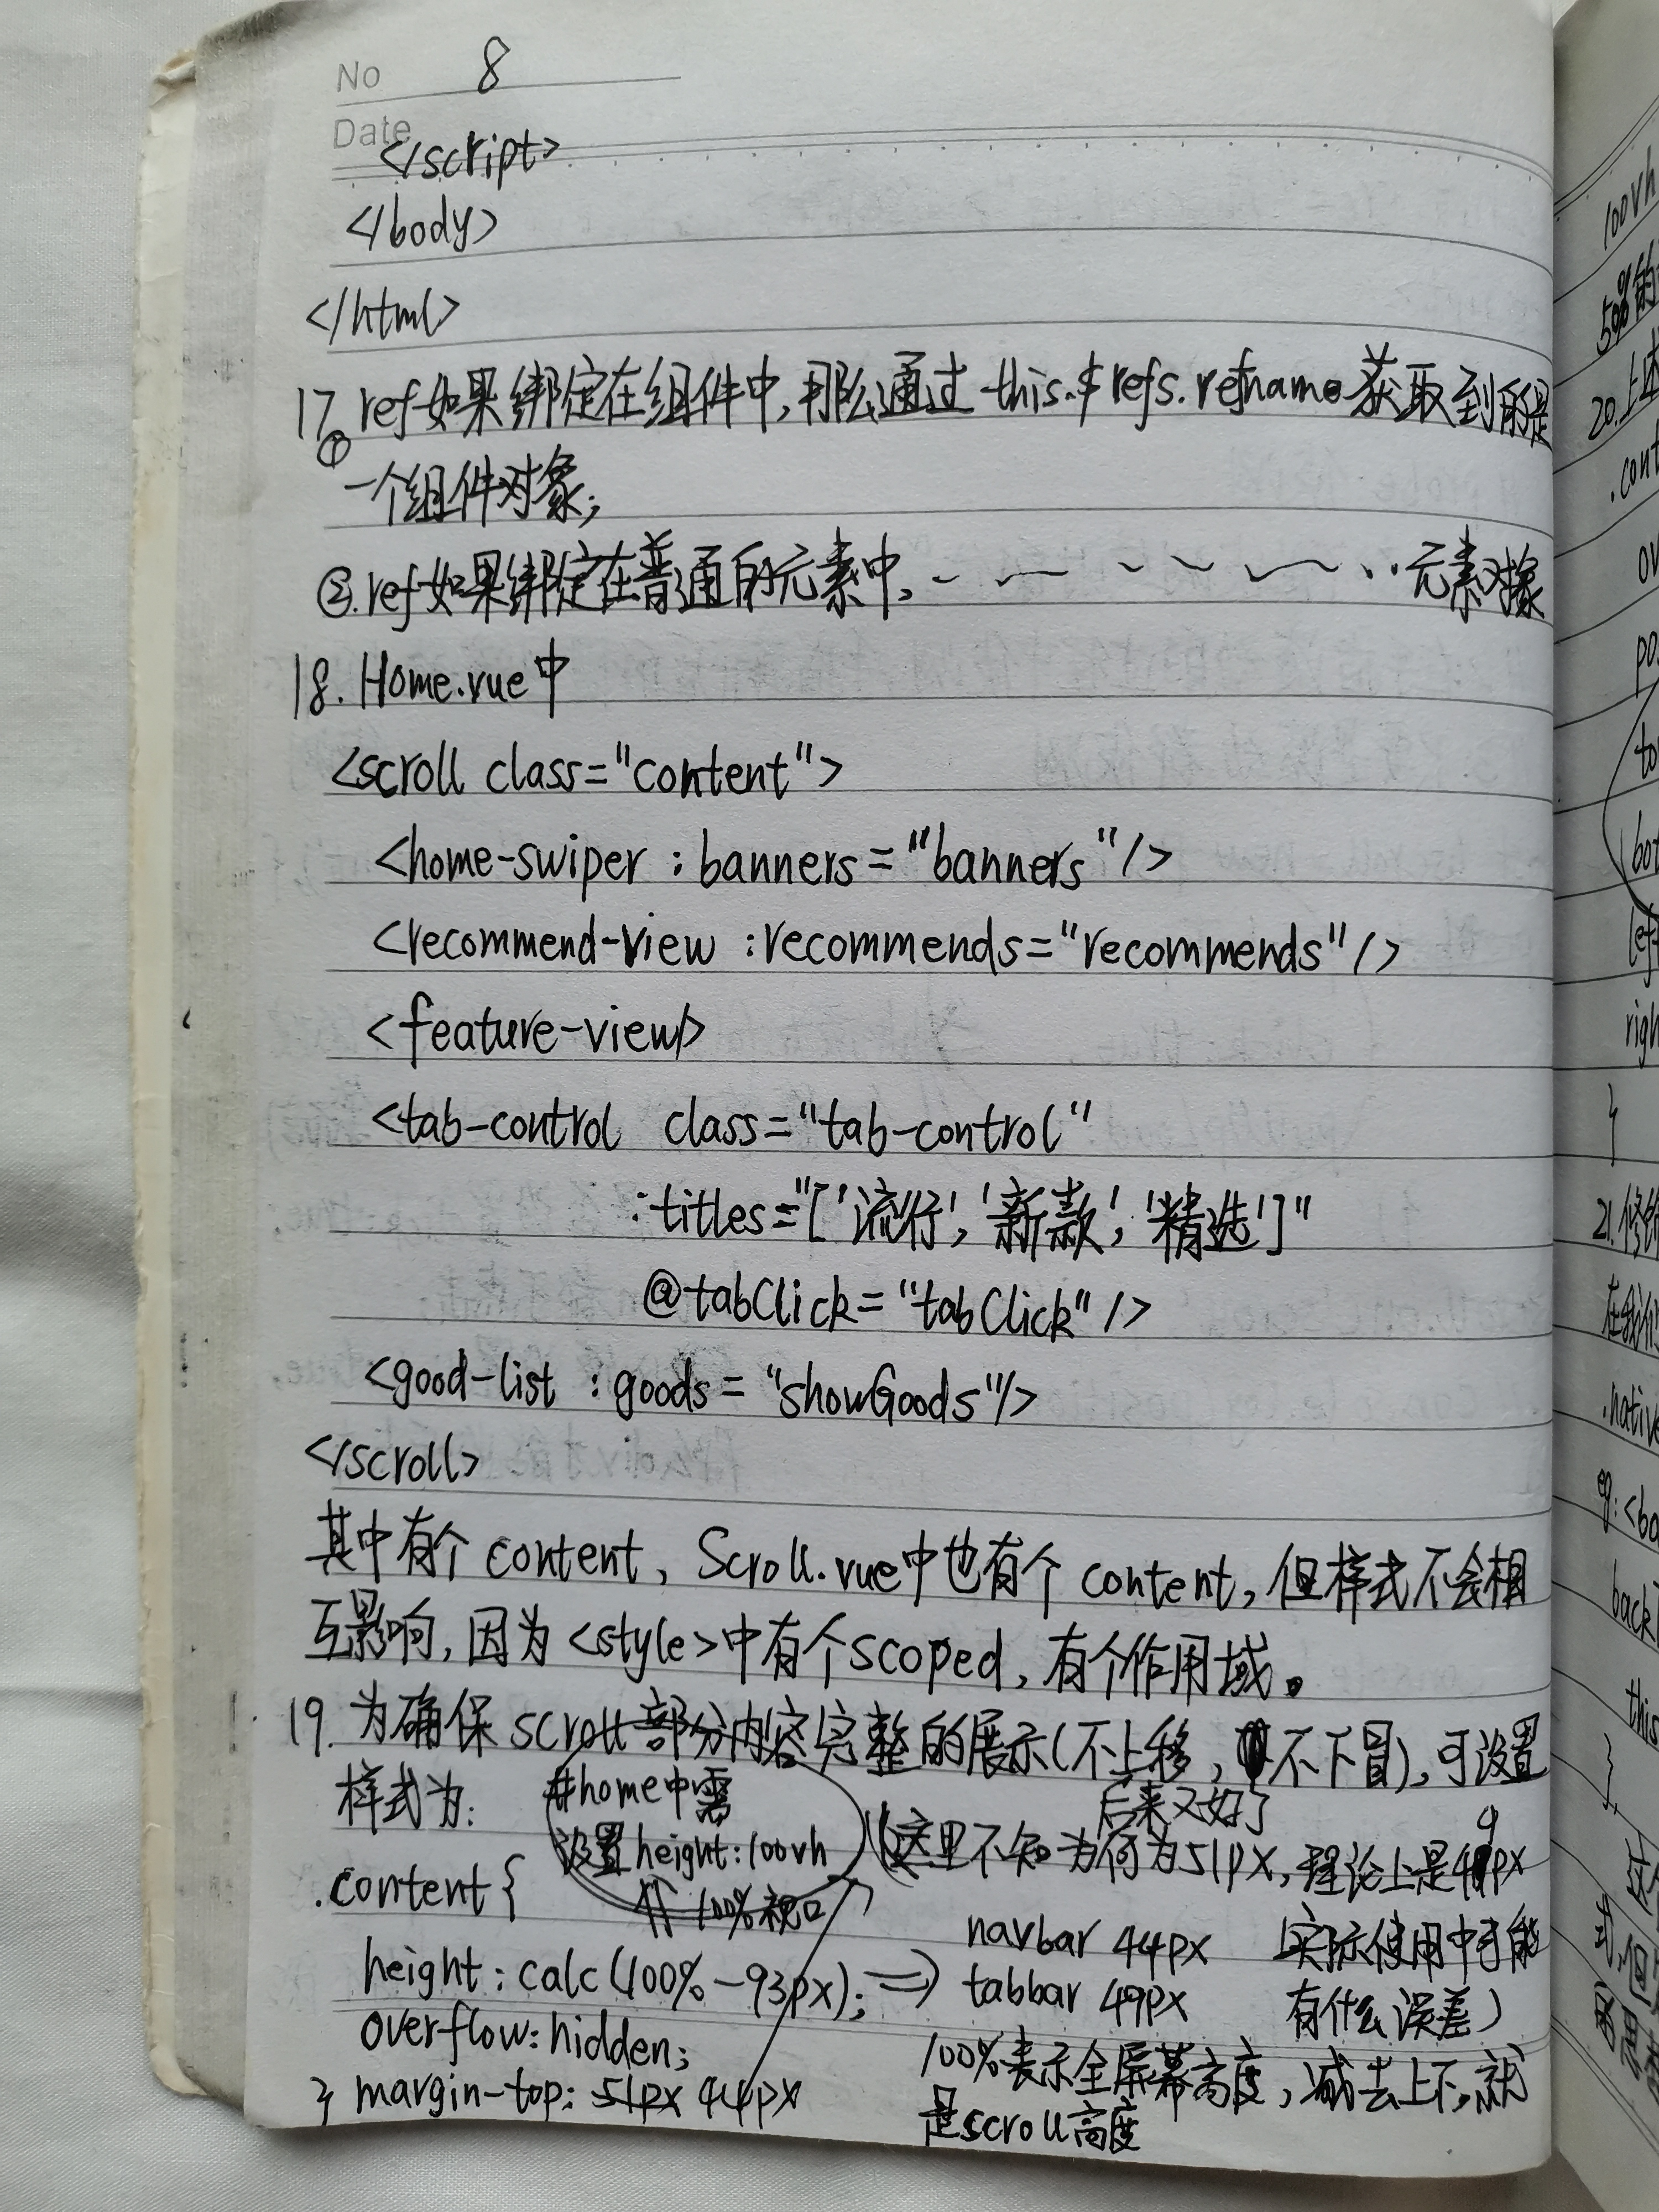 No 8
Date
</script>
</body>
</html>
17. ① ref如果绑定在组件中,那么通过 this.$refs.refname 获取到的是
一个组件对象;
②.ref如果绑定在普通的元素中, 元素对象
18. Home.vue中
<scroll class="content">
<home-swiper :banners="banners"/>
<recommend-view :recommends="recommends"/>
<feature-view/>
<tab-control class="tab-control"
:titles="['流行','新款','精选']"
@tabClick="tabClick"/>
<good-list :goods="showGoods"/>
</scroll>
其中有个 content, Scroll.vue中也有个 content,但样式不会相
互影响,因为<style>中有个scoped,有个作用域。
19. 为确保 scroll部分内容完整的展示(不上移, 不下冒),可设置
样式为:
#home中需
设置height:100vh
⇑ 100%视口
后来又好了
(这里不知为何为51px,理论上是49px
实际使用中可能
有什么误差)
.content {
height: calc(100%-93px); => navbar 44px
tabbar 49px
overflow: hidden;
} margin-top: 51px 44px
100%表示全屏幕高度,减去上下,就
是scroll高度
100vh
50%的
20.上述
.cont
ov
po
to
bot
lef
righ
}
21.修饰
在我们
.native
eg: <ba
back
this
}